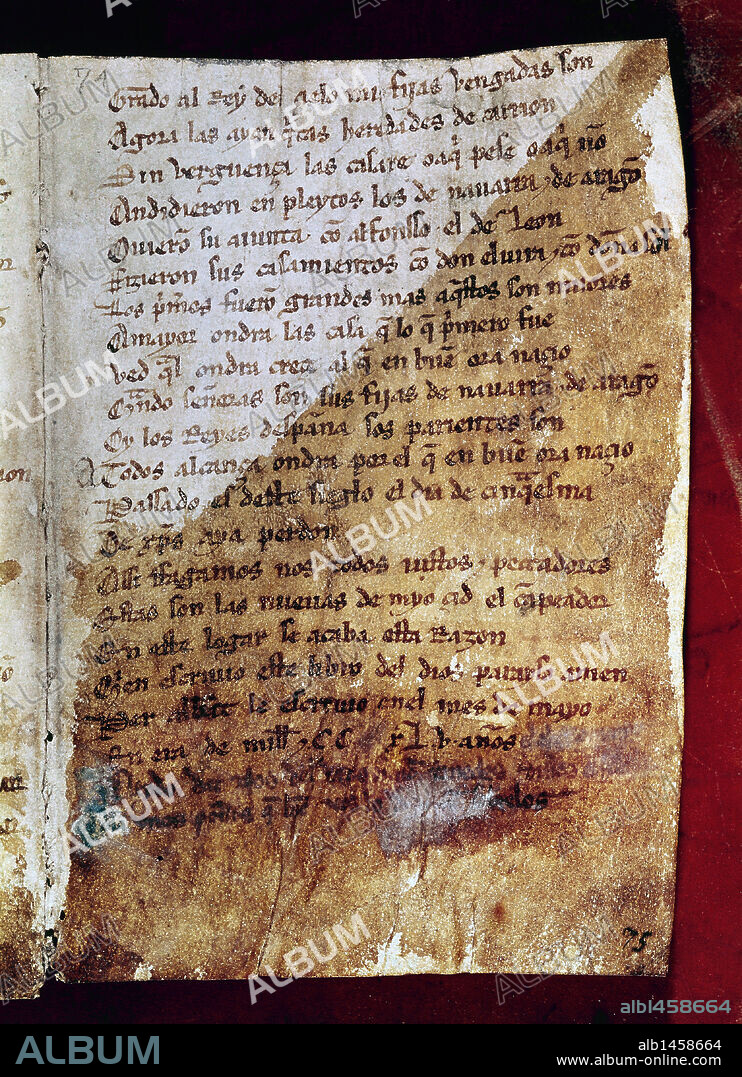 74
Grado al Rey del çielo mis fijas vengadas son
Agora las ayan q̃tas heredades de carrion
Sin verguença las casare o aq̃ pese o aq̃ nõ
Andidieron en pleytos los de nauarra ⁊ de aragõ
Ouierõ su aiunta cõ alfonsso el de Leon
Fizieron sus casamientos cõ don eluira ⁊ cõ doña sol
Los p̃meros fuerõ grandes mas aq̃stos son miiores
A mayor ondra las casa q̃ lo q̃ p̃mero fue
Ved q̃l ondra creçe al q̃ en buẽ ora naçio
Quãdo señoras son sus fijas de nauarra ⁊ de aragõ
Oy los Reyes despaña sos parientes son
A Todos alcança ondra por el q̃ en buẽ ora naçio
Passado es deste sieglo el dia de cinq̃esma
De xp̃s aya perdon
Assi ffagamos nos todos iustos ⁊ peccadores
Estas son las nueuas de myo çid el cãpeador
En este logar se acaba esta Razon
Quien escriuio este libro del dios parayso amen
Per abbat le escriuio en el mes de mayo
En era de mill ⁊ CC xLv años
75
ALBUM
alb1458664
ALBUM
alb1458664
www.album-online.com